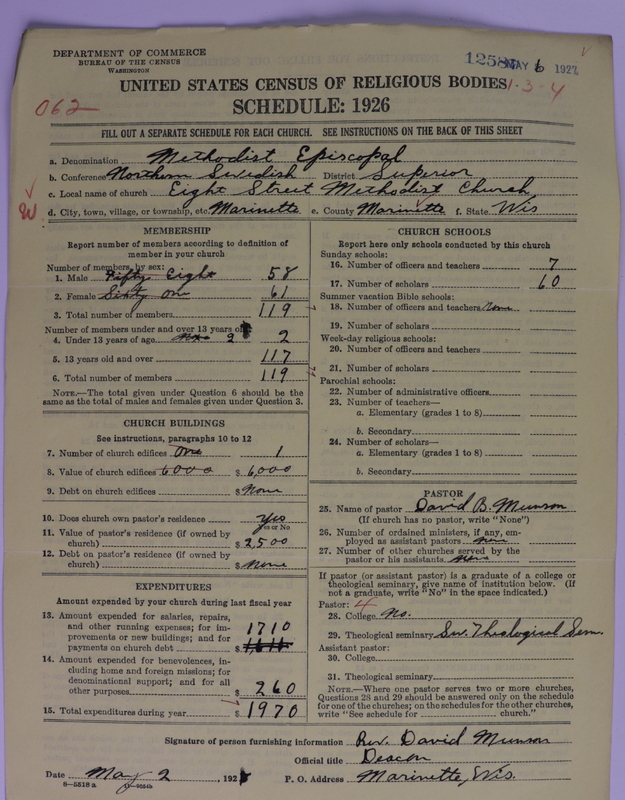 DEPARTMENT OF COMMERCE
BUREAU OF THE CENSUS
WASHINGTON
MAY 6 1927
UNITED STATES CENSUS OF RELIGIOUS BODIES 1-3-4
062
SCHEDULE: 1926
FILL OUT A SEPARATE SCHEDULE FOR EACH CHURCH. SEE INSTRUCTIONS ON THE BACK OF THIS SHEET
a. Denomination Methodist Episcopal
b. Conference Northern Swedish District Superior
c. Local name of church Eight Street Methodist Church
W
d. City, town, village, or township, etc. Marinette e. County Marinette f. State Wis
MEMBERSHIP
Report number of members according to definition of
member in your church
Number of members, by sex:
1. Male Fifty Eight 58
2. Female Sixty One 61
3. Total number of members 119
Number of members under and over 13 years of
4. Under 13 years of age 2 2
5. 13 years old and over 117
6. Total number of members 119
NOTE.—The total given under Question 6 should be
same as the total of males and females given under Question 3.
CHURCH BUILDINGS
See instructions, paragraphs 10 to 12
7. Number of church edifices One 1
8. Value of church edifices 6000 $ 6,000
9. Debt on church edifices $ None
10. Does church own pastor's residence Yes
Yes or No
11. Value of pastor's residence (if owned by
church) $ 2500
12. Debt on pastor's residence (if owned by
church) $ None
EXPENDITURES
Amount expended by your church during last fiscal year
13. Amount expended for salaries, repairs,
and other running expenses; for im-
provements or new buildings; and for
payments on church debt $ 1710
14. Amount expended for benevolences, in-
cluding home and foreign missions; for
denominational support; and for all
other purposes $ 260
15. Total expenditures during year $ 1970
CHURCH SCHOOLS
Report here only schools conducted by this church
Sunday schools:
16. Number of officers and teachers 7
17. Number of scholars 60
Summer vacation Bible schools:
18. Number of officers and teachers None
19. Number of scholars
Week-day religious schools:
20. Number of officers and teachers
21. Number of scholars
Parochial schools:
22. Number of administrative officers
23. Number of teachers—
a. Elementary (grades 1 to 8)
b. Secondary
24. Number of scholars—
a. Elementary (grades 1 to 8)
b. Secondary
PASTOR
25. Name of pastor David B. Munson
(If church has no pastor, write "None")
26. Number of ordained ministers, if any, em-
ployed as assistant pastors None
27. Number of other churches served by the
pastor or his assistants None
If pastor (or assistant pastor) is a graduate of a college or
theological seminary, give name of institution below. (If
not a graduate, write "No" in the space indicated.)
Pastor: 4
28. College No.
29. Theological seminary Sw. Theological Sem.
Assistant pastor:
30. College
31. Theological seminary
NOTE.—Where one pastor serves two or more churches,
Questions 28 and 29 should be answered only on the schedule
for one of the churches; on the schedules for the other churches,
write "See schedule for church."
Signature of person furnishing information Rev. David Munson
Official title Deacon
Date May 2, 192 P. O. Address Marinette, Wis.
8—5518 a